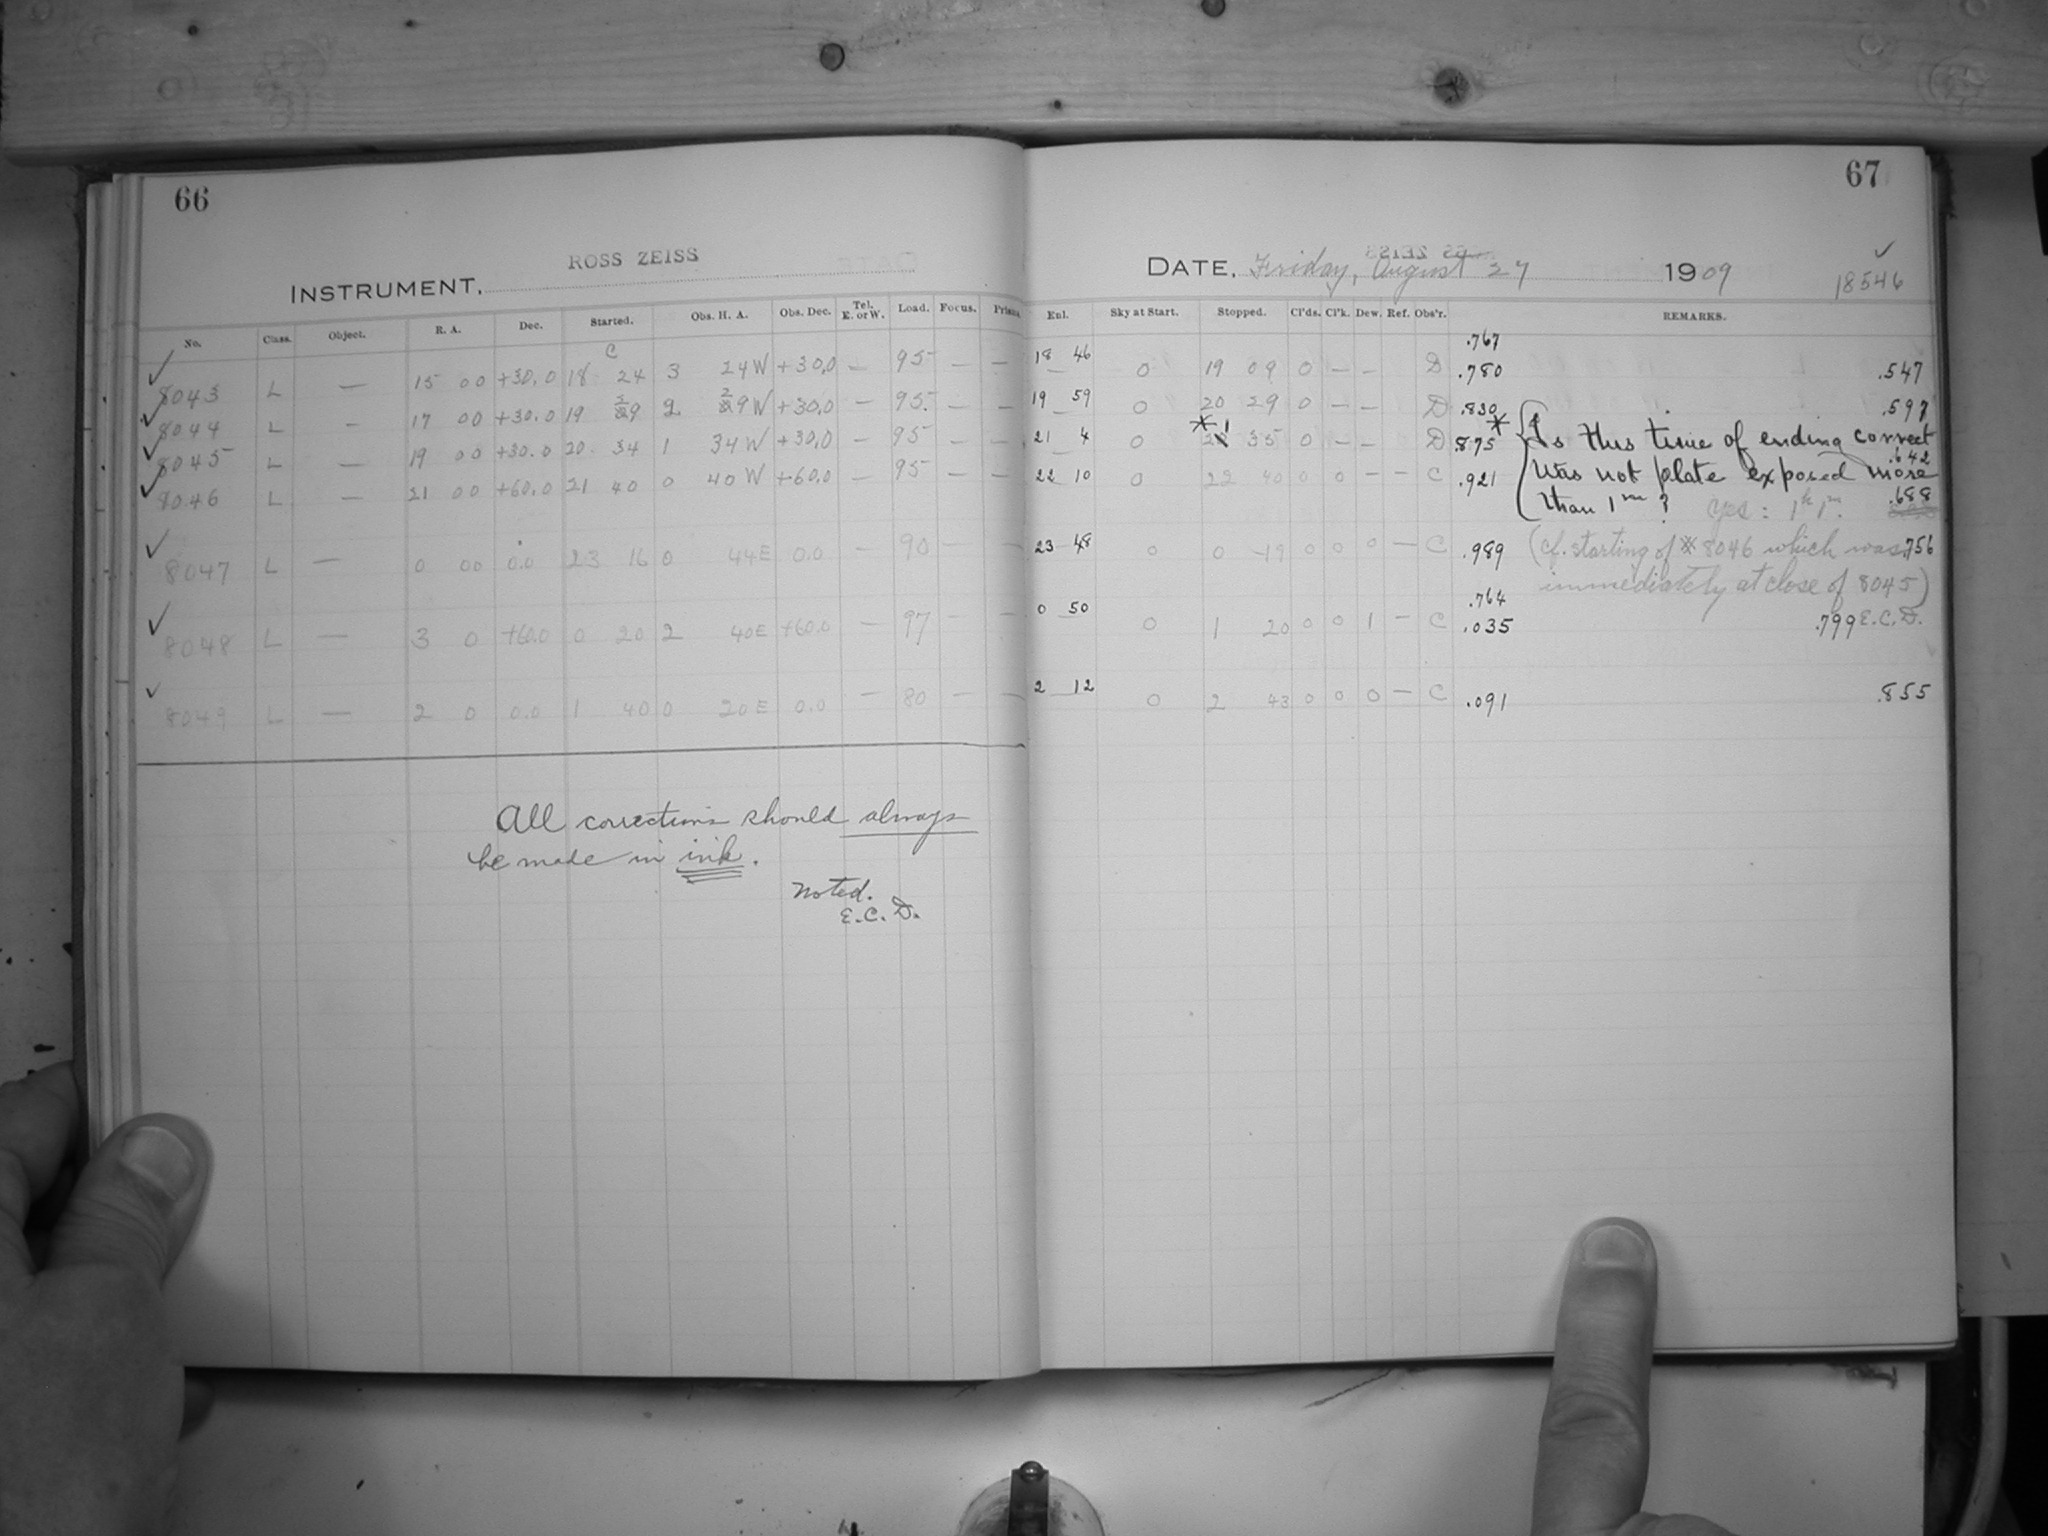 66
ROSS ZEISS
INSTRUMENT.
No. Class. Object. R. A. Dec. Started. Obs. H. A. Obs. Dec. Tel. E. or W. Load. Focus. Prism.
8043 L — 15 00 +30.0 18 24 3 24 W +30.0 — 95 — —
8044 L — 17 00 +30.0 19 29 2 29 W +30.0 — 95 — —
8045 L — 19 00 +30.0 20 34 1 34 W +30.0 — 95 — —
8046 L — 21 00 +60.0 21 40 0 40 W +60.0 — 95 — —
8047 L — 0 00 0.0 23 16 0 44 E 0.0 — 90 — —
8048 L — 3 0 +60.0 0 20 2 40 E +60.0 — 97 — —
8049 L — 2 0 0.0 1 40 0 20 E 0.0 — 80 — —
All corrections should always
be made in ink.
Noted.
E. C. D.
67
DATE. Friday, August 27 1909
18546
Enl. Sky at Start. Stopped. Cl'ds. Cl'k. Dew. Ref. Obs'r. REMARKS.
.767
18 46 0 19 09 0 — — D .780 .547
19 59 0 20 29 0 — — D .830 .597
21 4 0 21 35 0 — — D .875 * Is this time of ending correct
.642
22 10 0 22 40 0 0 — — C .921 Was not plate exposed more
.688
than 1m? Yes: 1h 1m.
23 48 0 0 19 0 0 0 — C .989 (cf. starting of 8046 which was .756
immediately at close of 8045)
.764
0 50 0 1 20 0 0 1 — C .035 .799 E. C. D.
2 12 0 2 43 0 0 0 — C .091 .855